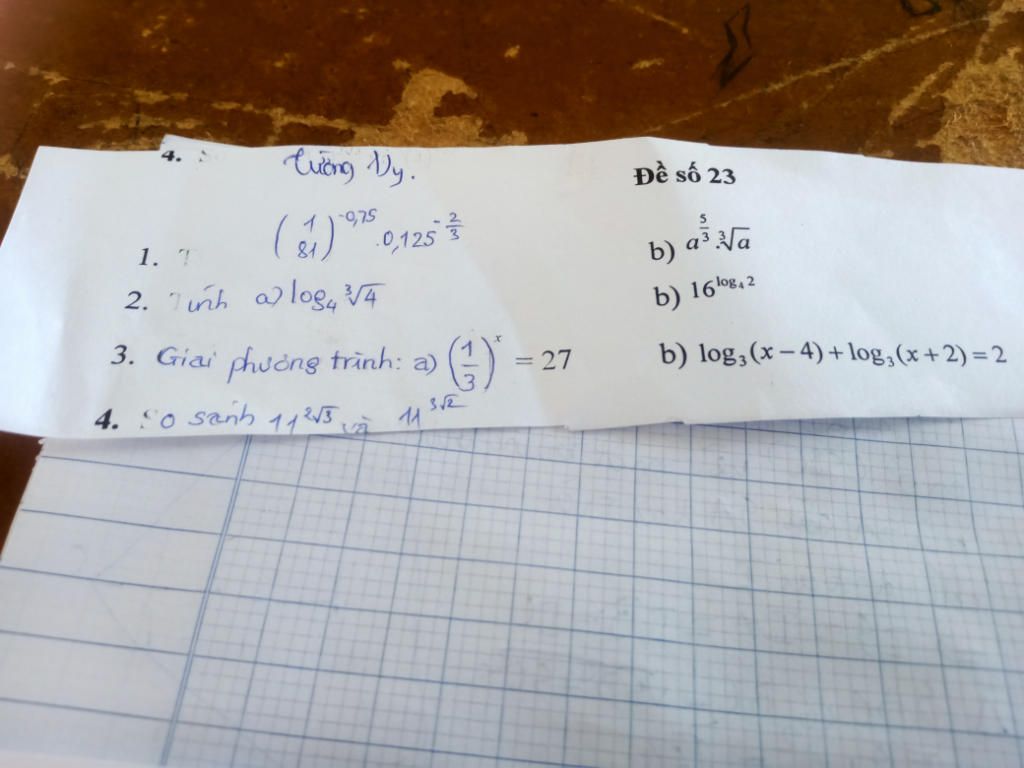 4. Tường Vy. Đề số 23
1. T (1/81)^-0,75 .0,125^-2/3 b) a^5/3.∛a
2. Tính a) log₄ ∛4 b) 16^log₄2
3. Giai phương trình: a) (1/3)^x = 27 b) log₃(x − 4) + log₃(x + 2) = 2
4. So sanh 11^2√3 và 11^3√2